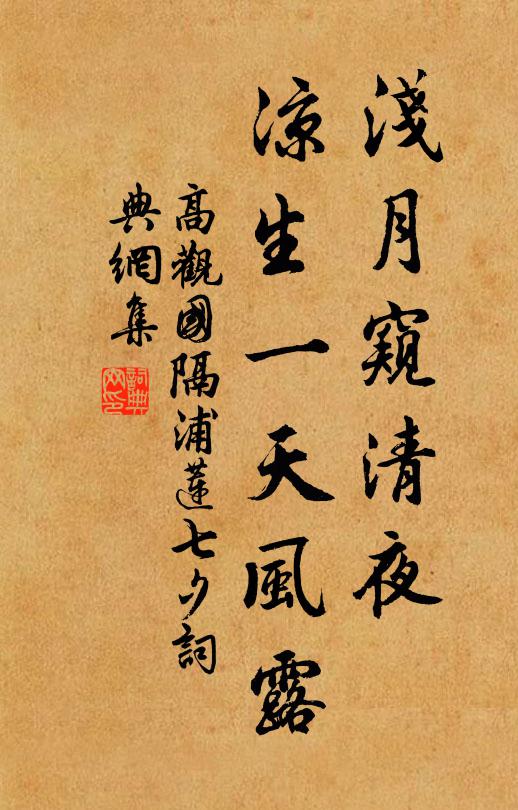 淺月窺清夜
涼生一天風露
高觀國隔浦蓮七夕詞
典網集
詞典
网印